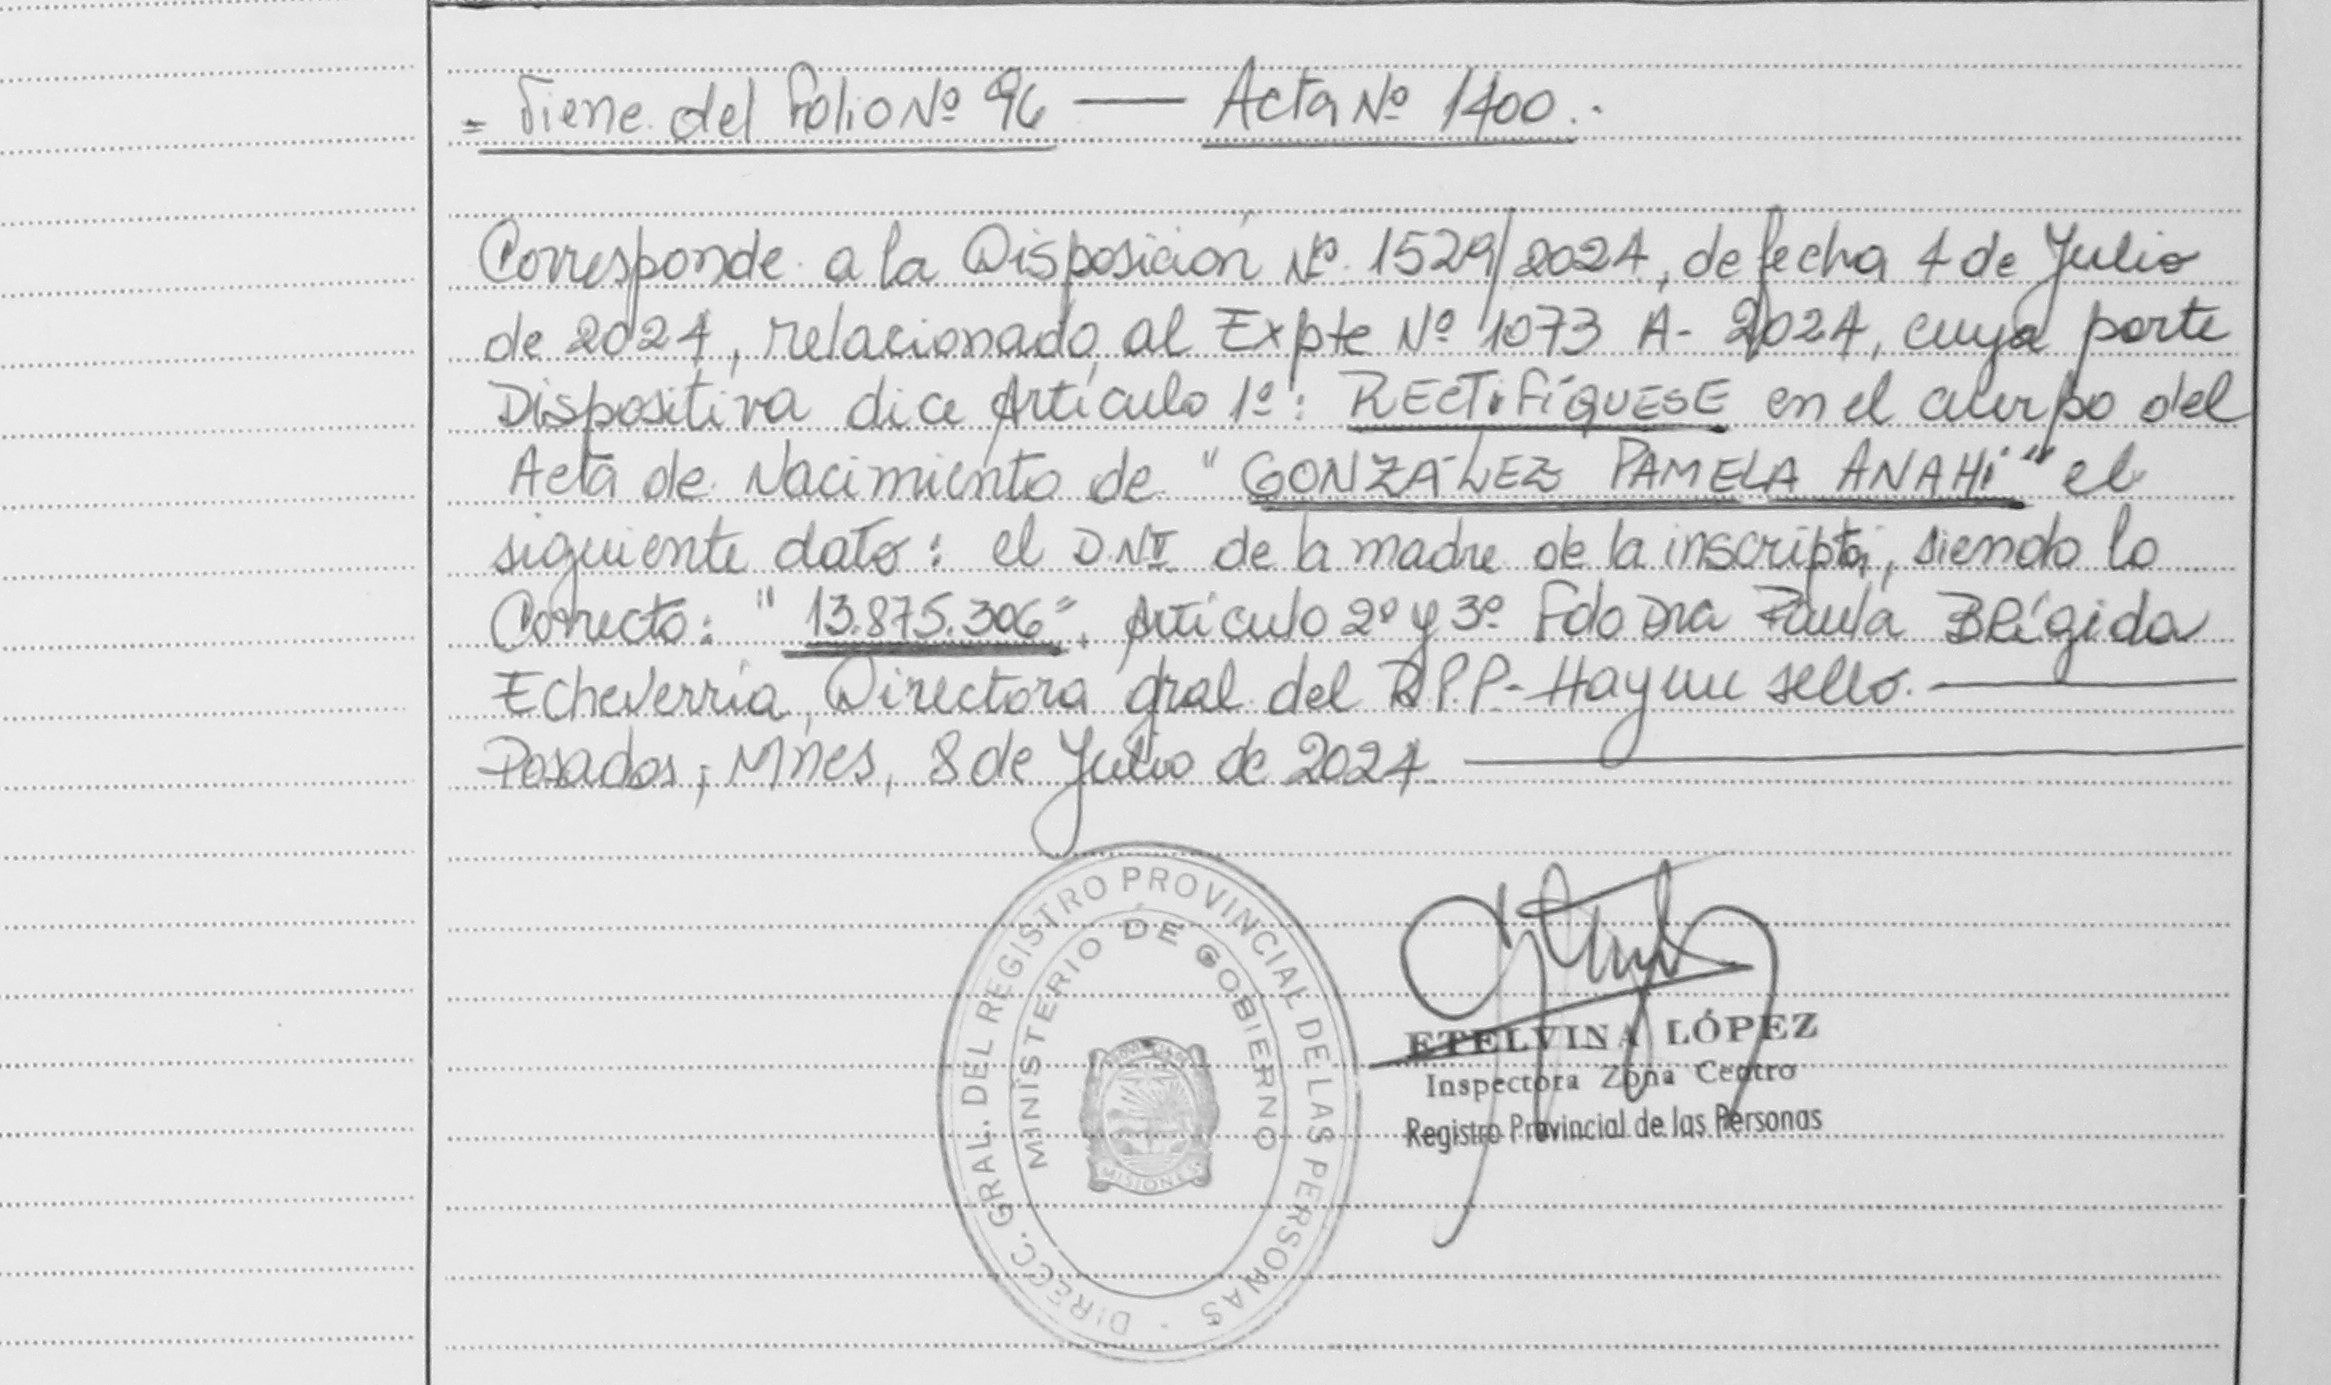 = Viene del Folio Nº 96 — Acta Nº 1400.-
Corresponde a la Disposición Nº 1529/2024, de fecha 4 de Julio
de 2024, relacionado al Expte Nº 1073 A- 2024, cuya parte
Dispositiva dice Artículo 1º: RECTIFÍQUESE en el cuerpo del
Acta de Nacimiento de "GONZÁLEZ PAMELA ANAHÍ" el
siguiente dato: el DNI de la madre de la inscripta, siendo lo
Correcto: "13.875.306". Artículo 2º y 3º Fdo Dra Paula Brígida
Echeverría, Directora gral del R.P.P- Hay un sello. —
Posadas, Mnes, 8 de Julio de 2024 —
DIRECC. GRAL. DEL REGISTRO PROVINCIAL DE LAS PERSONAS
MINISTERIO DE GOBIERNO
MISIONES
ETELVINA LÓPEZ
Inspectora Zona Centro
Registro Provincial de las Personas